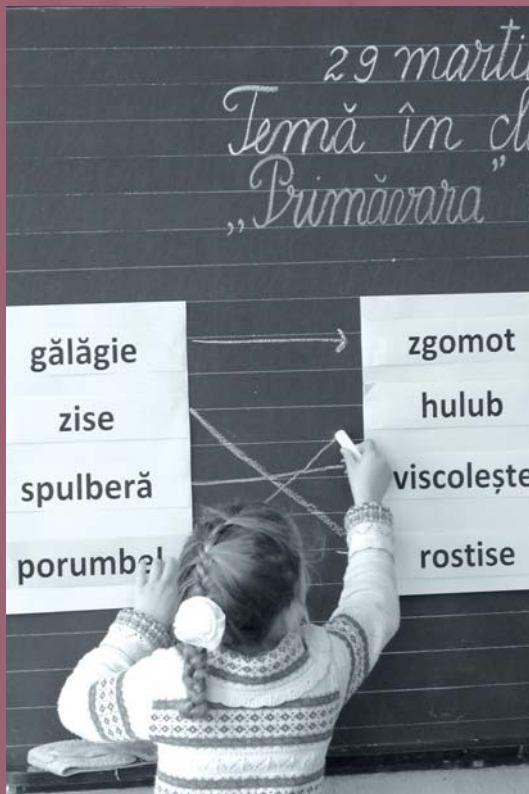 29 martie
Temă în cl
„Primăvara”
gălăgie
zise
spulberă
porumbel
zgomot
hulub
viscolește
rostise